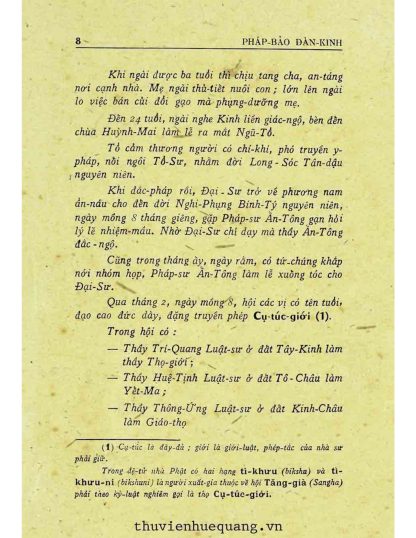 8 PHÁP-BẢO ĐÀN-KINH
Khi ngài được ba tuổi thì chịu tang cha, an-táng
nơi cạnh nhà. Mẹ ngài thủ-tiết nuôi con ; lớn lên ngài
lo việc bán củi đổi gạo mà phụng-dưỡng mẹ.
Đến 24 tuổi, ngài nghe Kinh liền giác-ngộ, bèn đến
chùa Huỳnh-Mai làm lễ ra mắt Ngũ-Tổ.
Tổ cầm thương người có chí-khí, phó truyền y-
pháp, nối ngôi Tổ-Sư, nhằm đời Long-Sóc Tân-dậu
nguyên niên.
Khi đắc-pháp rồi, Đại-Sư trở về phương nam
ẩn-náu cho đến đời Nghi-Phụng Bính-Tý nguyên niên,
ngày mồng 8 tháng giêng, gặp Pháp-sư Ấn-Tông gạn hỏi
lý lẽ nhiệm-mầu. Nhờ Đại-Sư chỉ dạy mà thầy Ấn-Tông
đắc-ngộ.
Cũng trong tháng ấy, ngày rằm, có tứ-chúng khắp
nơi nhóm họp, Pháp-sư Ấn-Tông làm lễ xuống tóc cho
Đại-Sư.
Qua tháng 2, ngày mồng 8, hội các vị có tên tuổi,
đạo cao đức dày, đặng truyền phép Cụ-túc-giới (1).
Trong hội có :
— Thầy Trí-Quang Luật-sư ở đất Tây-Kinh làm
thầy Thọ-giới ;
— Thầy Huệ-Tịnh Luật-sư ở đất Tô-Châu làm
Yết-Ma ;
— Thầy Thông-Ứng Luật-sư ở đất Kinh-Châu
làm Giáo-thọ
(1) Cụ-túc là đầy-đủ ; giới là giới-luật, phép-tắc của nhà sư
phải giữ.
Trong đệ-tử nhà Phật có hai hạng tì-khưu (biksha) và tì-
khưu-ni (bikshuni) là người xuất-gia thuộc về hội Tăng-già (Sangha)
phải theo kỷ-luật nghiêm gọi là thọ Cụ-túc-giới.
thuvienhuequang.vn